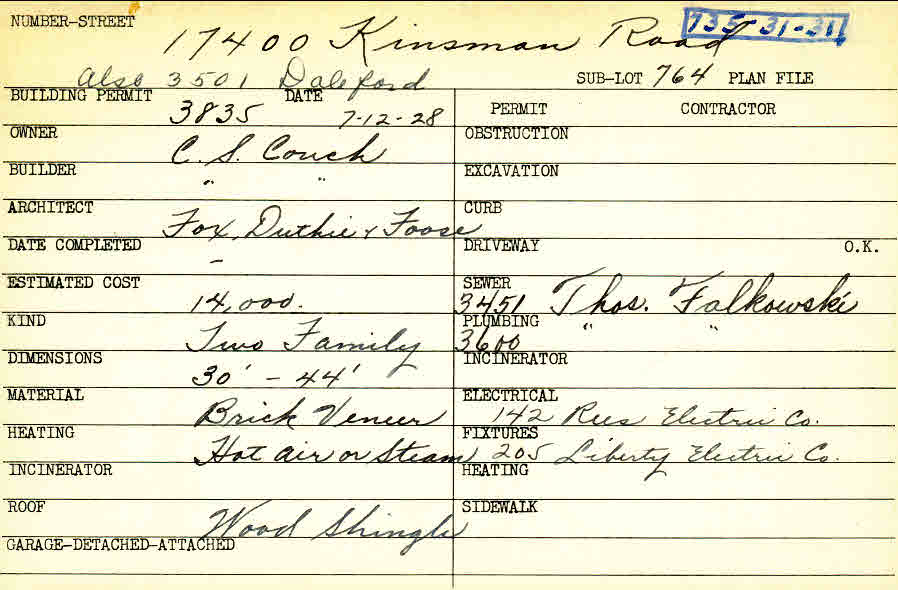 NUMBER-STREET 17400 Kinsman Road 735-31-31
Also 3501 Daleford SUB-LOT 764 PLAN FILE
BUILDING PERMIT 3835 DATE 7-12-28
OWNER C. S. Couch
BUILDER " "
ARCHITECT Fox, Duthie & Foose
DATE COMPLETED -
ESTIMATED COST 14,000.
KIND Two Family
DIMENSIONS 30' - 44'
MATERIAL Brick Veneer
HEATING Hot Air or Steam
INCINERATOR
ROOF Wood Shingle
GARAGE-DETACHED-ATTACHED
PERMIT CONTRACTOR
OBSTRUCTION
EXCAVATION
CURB
DRIVEWAY O.K.
SEWER 3451 Thos. Falkowski
PLUMBING 3600 " "
INCINERATOR
ELECTRICAL 142 Rees Electric Co.
FIXTURES 205 Liberty Electric Co.
HEATING
SIDEWALK